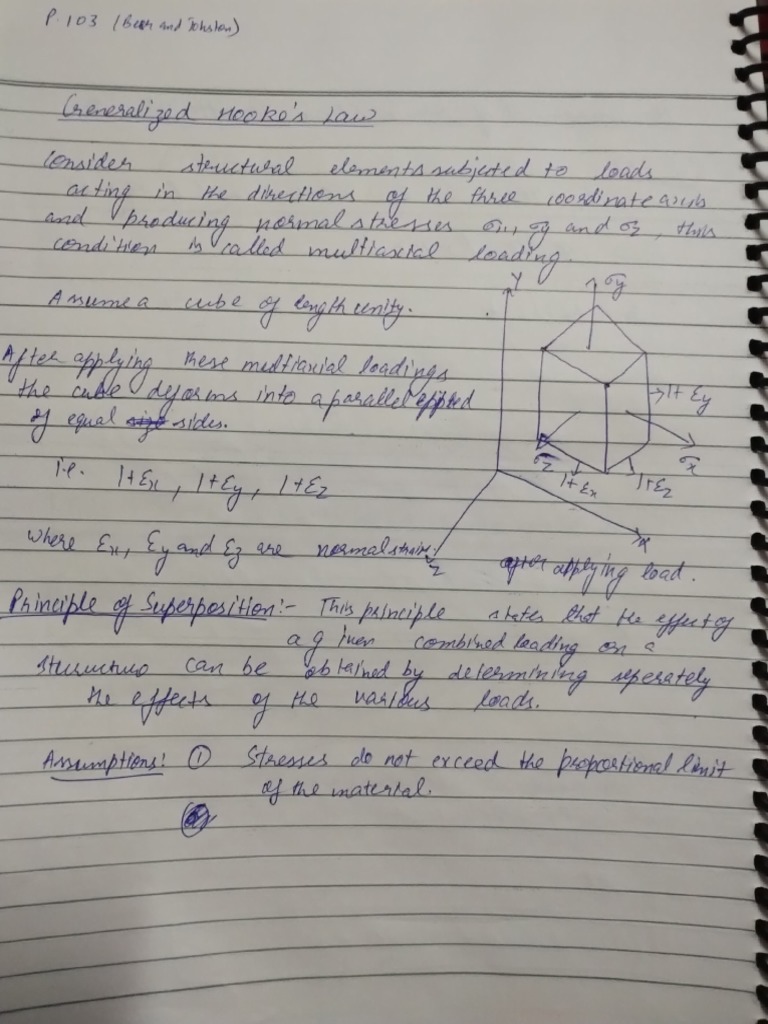 P.103 (Beer and Johston)
Generalized Hooke's Law
Consider structural elements subjected to loads
acting in the directions of the three coordinate axis
and producing normal stresses σx, σy and σz, this
condition is called multiaxial loading.
Assume a cube of length unity.
Y
σy
After applying these multiaxial loadings
the cube deforms into a parallel epped
of equal sides.
→1+εy
σz
σx
1+εx
1+εz
i.e. 1+εx, 1+εy, 1+εz
X
where εx, εy and εz are normal strain.
Z
after applying load.
Principle of Superposition:- This principle states that the effect of
a given combined loading on a
structure can be obtained by determining seperately
the effects of the various loads.
Assumptions: ① Stresses do not exceed the proportional limit
of the material.